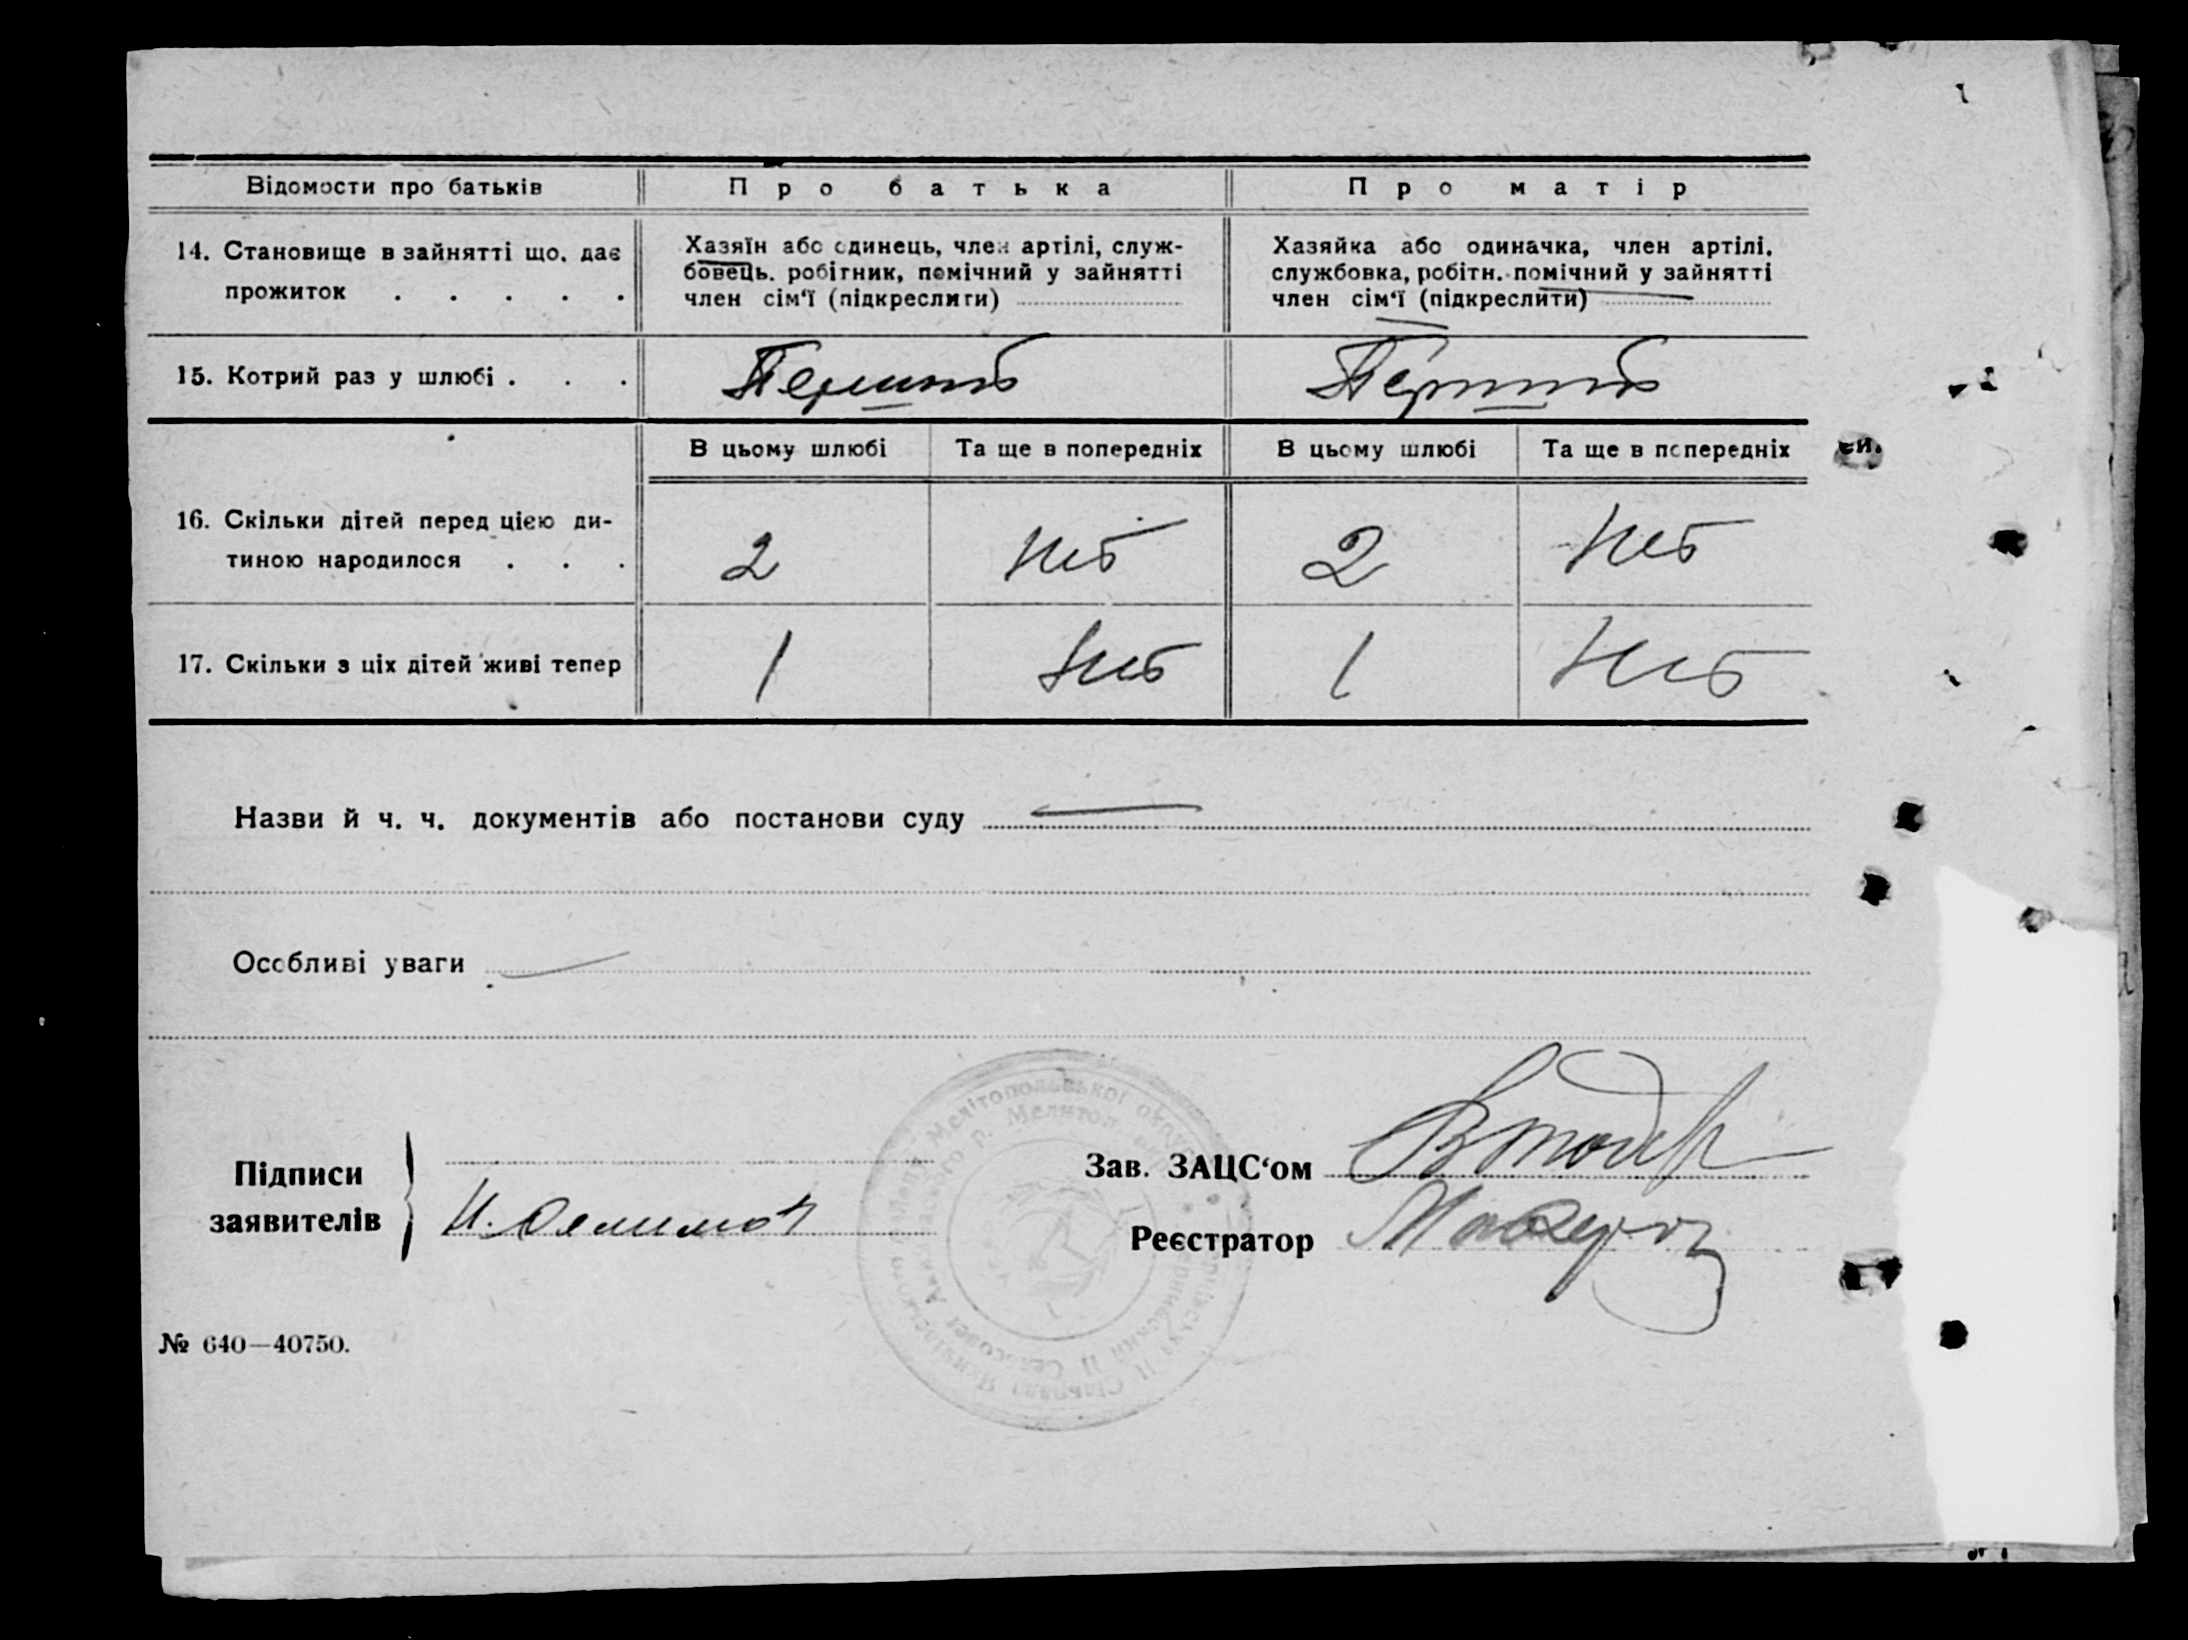 Відомости про батьків
Про батька
Про матір
14. Становище в зайнятті що, дає
прожиток . . . . .
Хазяїн або одинець, член артілі, служ-
бовець. робітник, помічний у зайнятті
член сім'ї (підкреслити)
Хазяйка або одиначка, член артілі,
службовка, робітн. помічний у зайнятті
член сім'ї (підкреслити)
15. Котрий раз у шлюбі . . .
В цьому шлюбі
Та ще в попередніх
В цьому шлюбі
Та ще в попередніх
16. Скільки дітей перед цією ди-
тиною народилося . . .
2
Нет
2
Нет
17. Скільки з ціх дітей живі тепер
1
Нет
1
Нет
Назви й ч. ч. документів або постанови суду
Особливі уваги
Підписи
заявителів
Зав. ЗАЦС‘ом
Реєстратор
№ 640—40750.